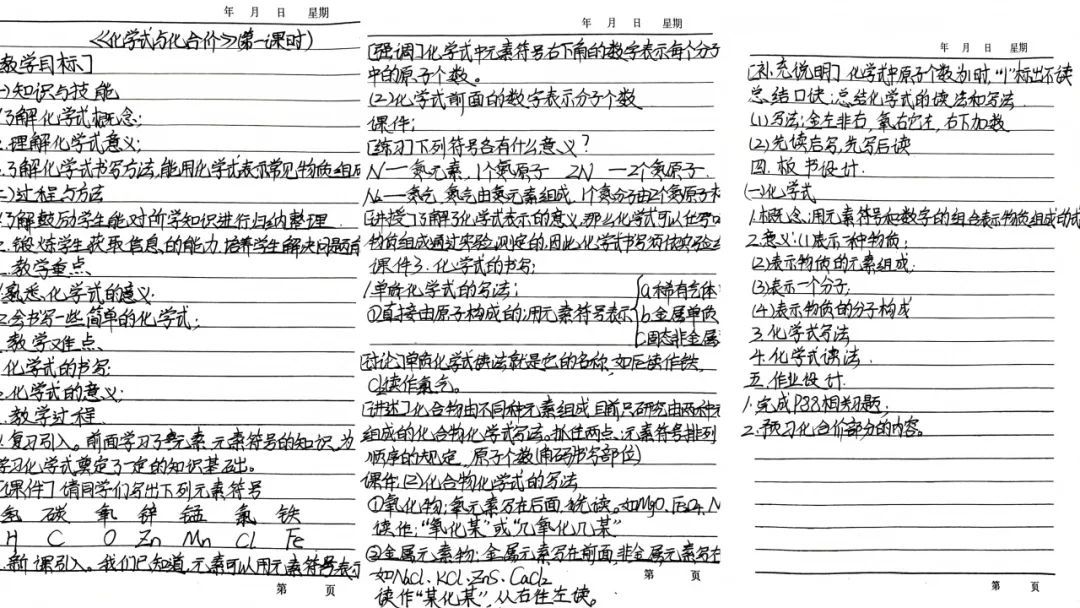 年 月 日 星期
《化学式与化合价》(第一课时)
教学目标]
一)知识与技能
了解化学式概念;
理解化学式意义;
了解化学式书写方法,能用化学式表示常见物质组成
二)过程与方法
了解鼓励学生能对所学知识进行归纳整理
2.锻炼学生获取信息的能力,培养学生解决问题
.教学重点
熟悉化学式的意义.
2会书写一些简单的化学式;
.教学难点
化学式的书写;
化学式的意义;
.教学过程
.复习引入。前面学习了元素,元素符号的知识,为
学习化学式奠定了一定的知识基础。
[课件]请同学们写出下列元素符号
氢 碳 氧 锌 锰 氯 铁
H C O Zn Mn Cl Fe
.新课引入。我们已知道,元素可以用元素符号表示
第 页
年 月 日 星期
[强调]化学式中元素符号右下角的数字表示每个分子
中的原子个数。
(2)化学式前面的数字表示分子个数
课件;
[练习]下列符号各有什么意义?
N—氮元素,1个氮原子 2N —2个氮原子.
N₂—氮气,氮气由氮元素组成,1个氮分子由2个氮原子
[讲授]了解了化学式表示的意义,那么化学式可以任写
物质组成通过实验测定的,因此化学式书写须依实验
课件3.化学式的书写;
1单质化学式的写法;
①直接由原子构成的;用元素符号表示
a.稀有气体
b金属单质
C固态非金属
[讨论]单质化学式读法就是它的名称,如Fe读作铁,
Cl₂读作氯气。
[讲述]化合物由不同种元素组成,目前只研究由两种
组成的化合物化学式写法,抓住两点:元素符号排列
顺序的规定,原子个数(角码书写部位)
课件:(2)化合物化学式的写法
①氧化物;氧元素写在后面,先读。如MgO、Fe₃O₄、N
读作;“氧化某”或“几氧化几某”
②金属元素物;金属元素写在前面,非金属元素写在
如NaCl、KCl、ZnS、CaCl₂
读作“某化某”,从右往左读。
第 页
年 月 日 星期
[补充说明]化学式中原子个数为1时,“1”标出不读
总结口诀;总结化学式的读法和写法
(1)写法;金左非右,氧右它左,右下加数
(2)先读后写,先写后读
四.板书设计.
(一)化学式
1.概念:用元素符号和数字的组合表示物质组成的式
2.意义:(1)表示一种物质;
(2)表示物质的元素组成;
(3)表示一个分子;
(4)表示物质的分子构成
3.化学式写法
4.化学式读法.
五.作业设计.
1.完成P88相关习题;
2.预习化合价部分的内容。
第 页